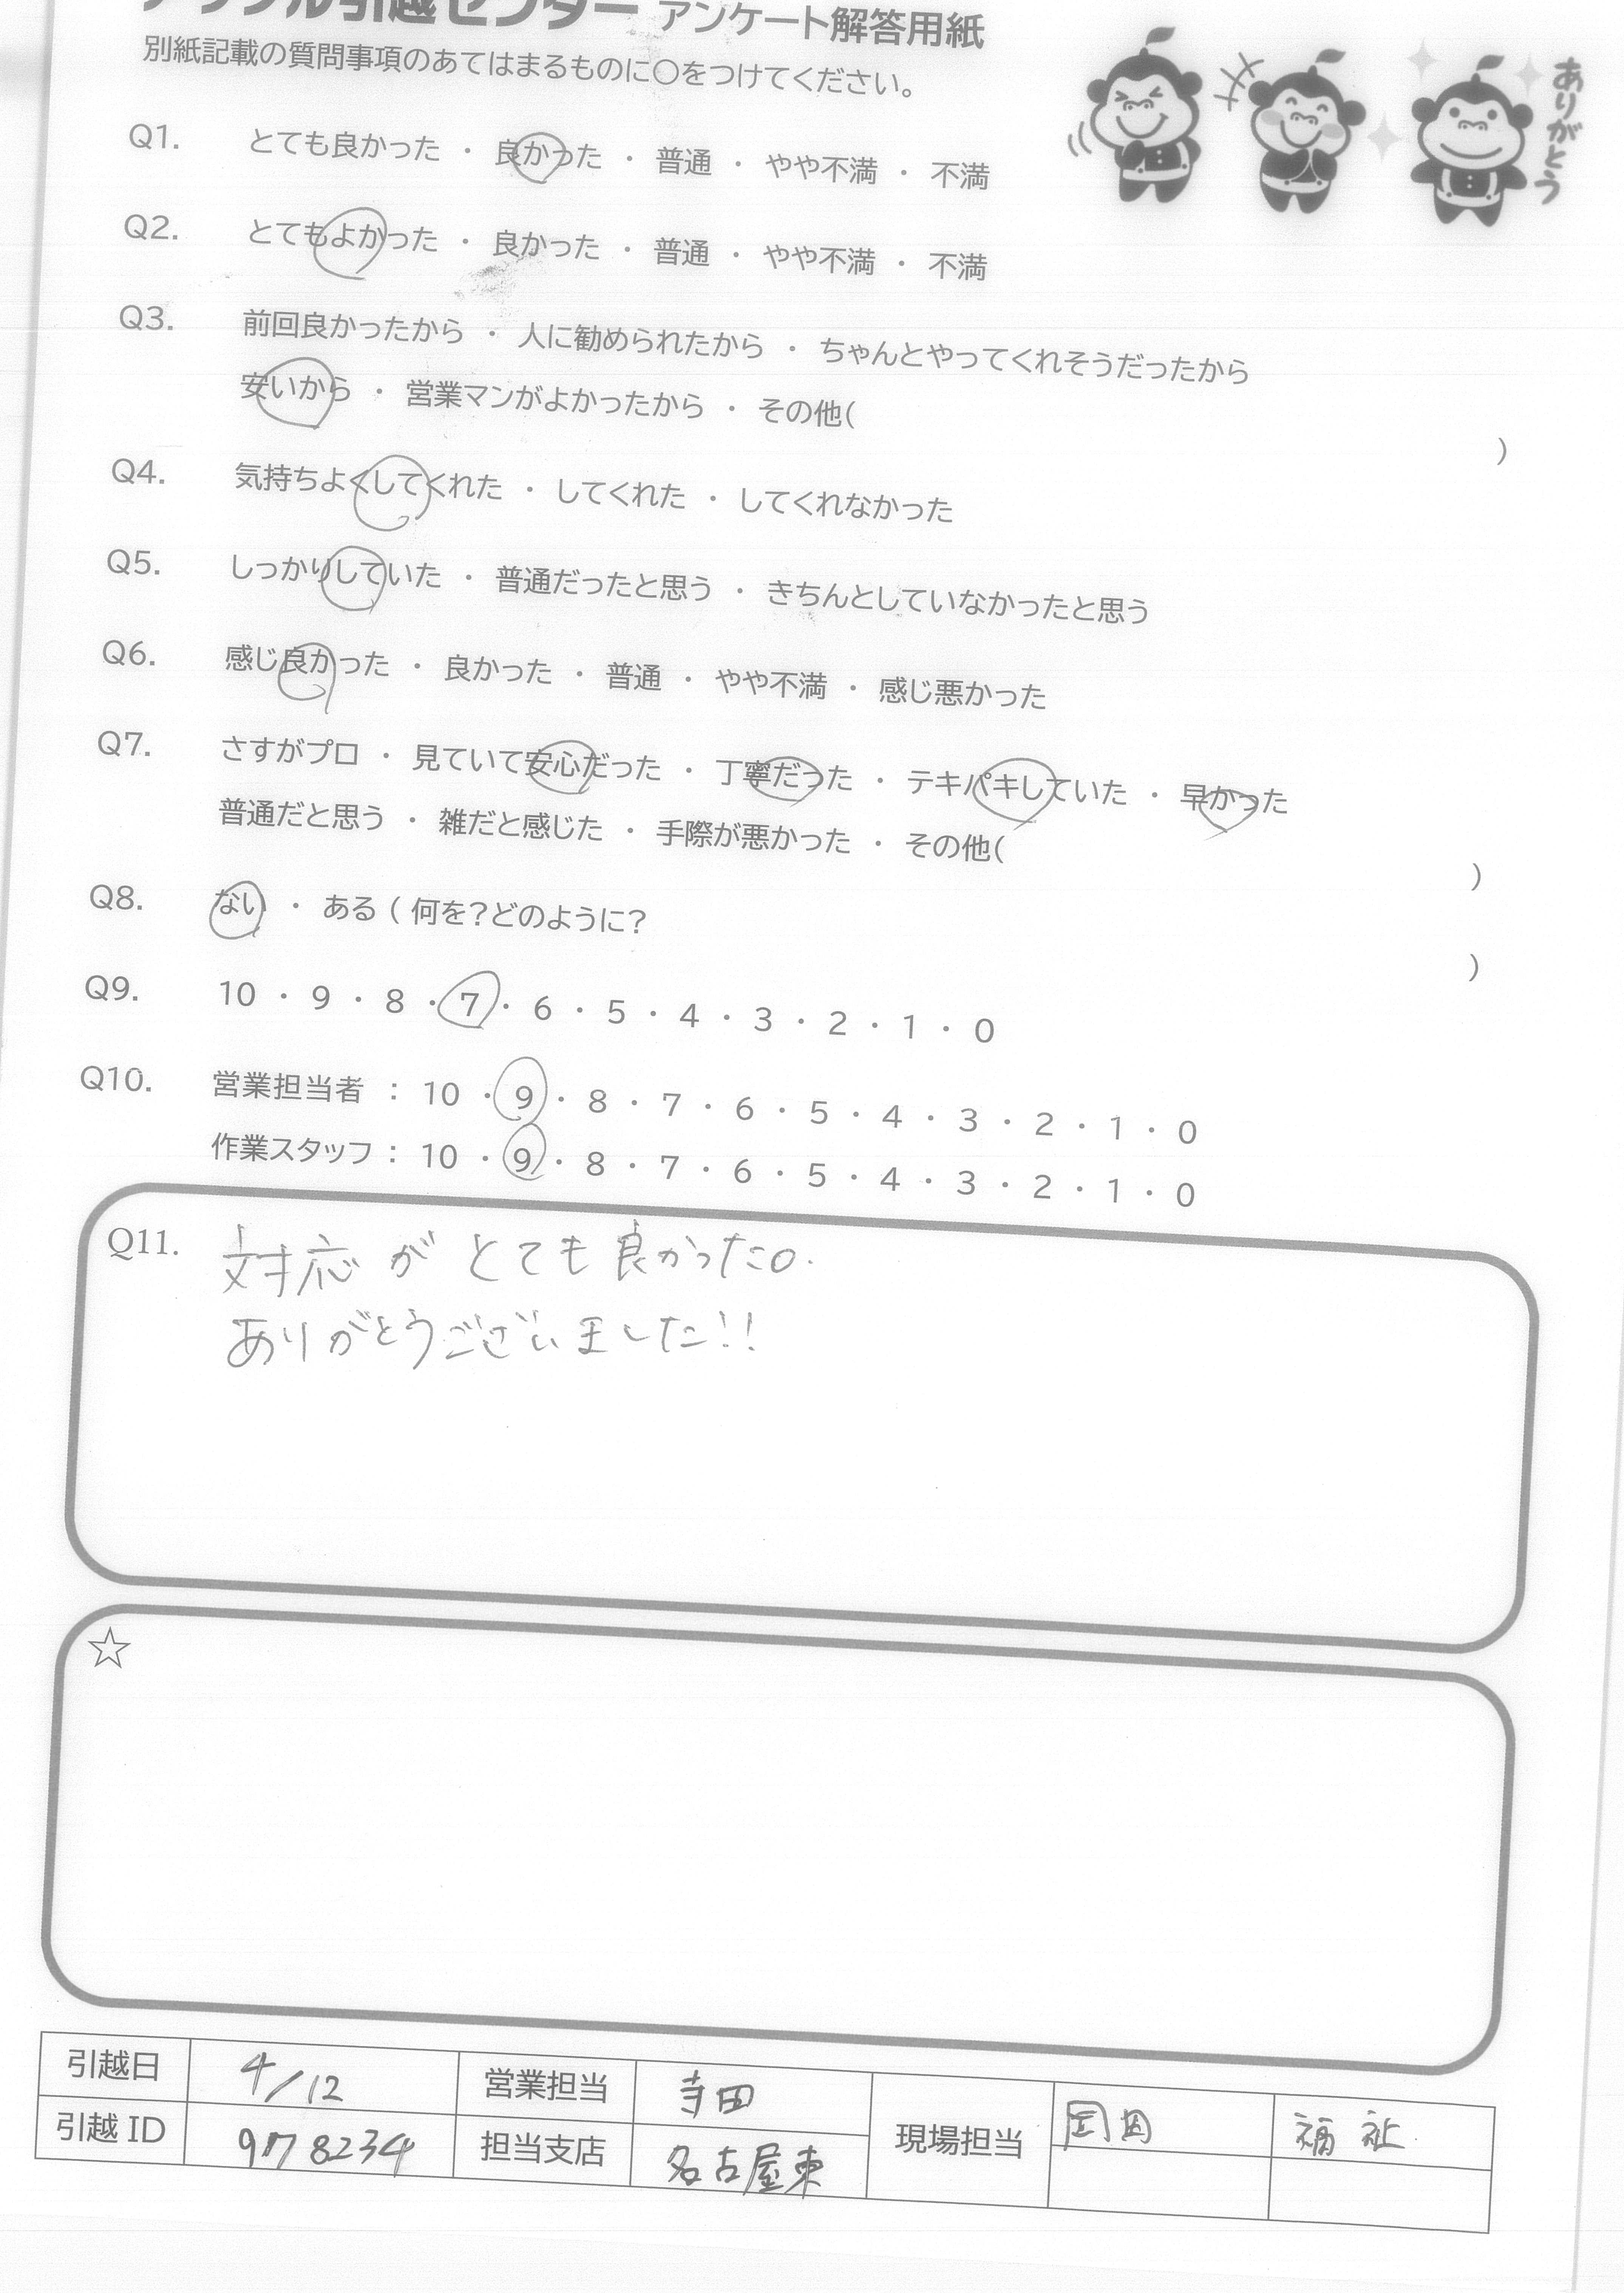 アップル引越センター アンケート解答用紙
別紙記載の質問事項のあてはまるものに○をつけてください。
ありがとう
Q1. とても良かった ・ 良かった ・ 普通 ・ やや不満 ・ 不満
Q2. とてもよかった ・ 良かった ・ 普通 ・ やや不満 ・ 不満
Q3. 前回良かったから ・ 人に勧められたから ・ ちゃんとやってくれそうだったから
安いから ・ 営業マンがよかったから ・ その他( )
Q4. 気持ちよくしてくれた ・ してくれた ・ してくれなかった
Q5. しっかりしていた ・ 普通だったと思う ・ きちんとしていなかったと思う
Q6. 感じ良かった ・ 良かった ・ 普通 ・ やや不満 ・ 感じ悪かった
Q7. さすがプロ ・ 見ていて安心だった ・ 丁寧だった ・ テキパキしていた ・ 早かった
普通だと思う ・ 雑だと感じた ・ 手際が悪かった ・ その他( )
Q8. ない ・ ある ( 何を?どのように? )
Q9. 10 ・ 9 ・ 8 ・ 7 ・ 6 ・ 5 ・ 4 ・ 3 ・ 2 ・ 1 ・ 0
Q10. 営業担当者 : 10 ・ 9 ・ 8 ・ 7 ・ 6 ・ 5 ・ 4 ・ 3 ・ 2 ・ 1 ・ 0
作業スタッフ : 10 ・ 9 ・ 8 ・ 7 ・ 6 ・ 5 ・ 4 ・ 3 ・ 2 ・ 1 ・ 0
Q11. 対応がとても良かった。
ありがとうございました!!
☆
引越日 4/12 営業担当 寺田 現場担当 福祉
引越 ID 978234 担当支店 名古屋東